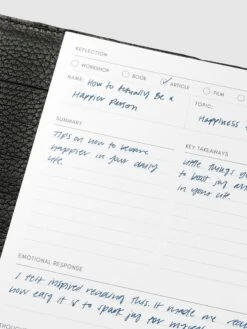 REFLECTION
WORKSHOP BOOK ARTICLE FILM
NAME: How to Actually Be a
Happier Person
TOPIC:
Happiness
SUMMARY
Tips on how to become
happier in your daily
life.
KEY TAKEAWAYS
Little things yo
to boost joy an
in your life.
EMOTIONAL RESPONSE
I felt inspired reading this. It made me rea
how easy it is to spark joy for myse
THOUGH